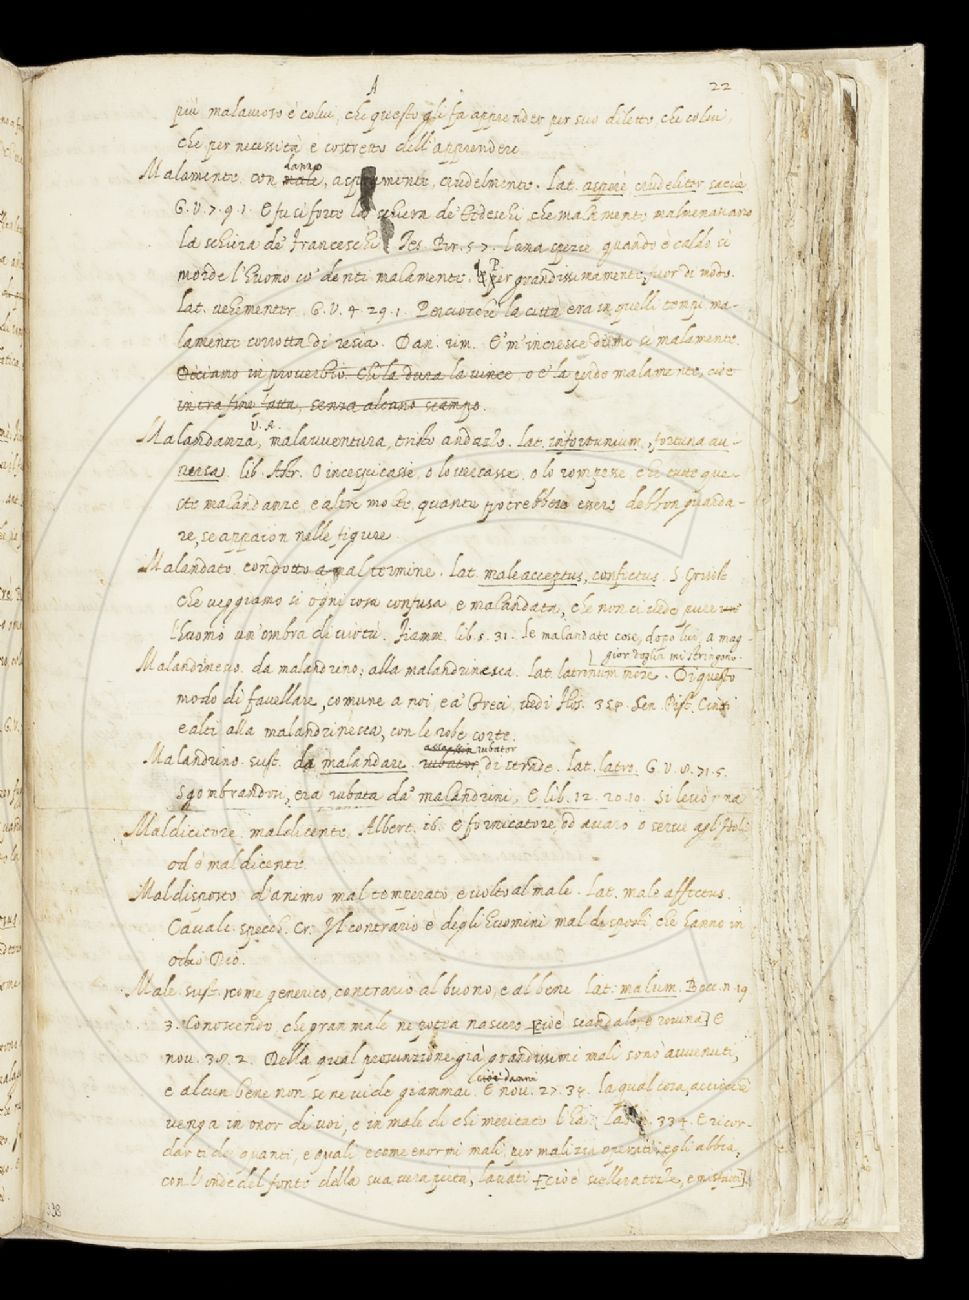 A
22
più malauroso è colui, che questo gli fa apprender per suo diletto che colui,
che per necessità è costretto dell'apprendere.
Malamente. con danno
male, aspramente, crudelmente. Lat. aspere crudeliter
G.V.7.9.1. E fu sì forte la schiera de' Tedeschi, che malamente
la schiera de' Franceschi. Tes. Br. 5.7. Luna spezie quando è caldo sì
morde l'huomo co' denti malamente. Per grandissimamente, fuor di modo.
Lat. vehementer. G.V.4.29.1. Perciocchè la città era in quelli tempi ma-
lamente corrotta di resia. Dan. rim. E m'incresce di me sì malamente.
Diciamo in proverbio. Chi la dura la vince, o e' la perde malamente, cioè
intra fine fatta, senza alcuno scampo.
V.A.
Malandanza, malauuentura, tristo andazzo. Lat. infortunium, fortuna au-
uersa. lib. Astr. O incespicasse, o lo o lo rompesse, che tutte que-
ste malandanze, e altre molte quante potrebbero essere debbon guarda-
re, se appaion nelle figure.
Malandato. condotto a mal termine. Lat. male acceptus, confectus. S Grisost.
che ueggiamo sì ogni cosa confusa, e malandata, che non ci uede
l'huomo un'ombra di uirtù. Fiamm. lib.5.31. le malandate cose, dopo lui, a mag-
gior doglia mi stringono.
Malandrinesco. da malandrino; alla malandrinesca. Lat. latronum more. Di questo
modo di fauellare, comune a noi, e a' Greci, uedi Flos. 358. Sen. Pist. Cinti
e alti alla malandrinesca, con le robe corte.
assassin rubator
Malandrino. sust. da malandare. rubator di strade. Lat. latro. G.V.8.71.5.
Sgombrandosi, era rubata da' malandrini, E lib.12.20.10. Si leuor na
Maldicitore. maldicente. Albert. 16. E fornicatore, od auaro o serue agl'Idoli
od è maldicente.
Maldisposto d'animo mal temperato, e uolto al male. Lat. male affectus.
Caualc. specch. Cr. Il contrario è degli huomini mal disposti, che hanno in
odio Dio.
Male. sust. nome generico, contrario al buono, e al bene. Lat. malum. Bocc. n. 19
3. Conoscendo, che gran male ne potea nascere [cioè scandalo, e rouina] E
nou. 38. 2. Della qual presunzione già grandissimi mali sono auuenuti,
cioè danni
e alcun bene non se ne uide giammai. E nou. 27. 34. la qual cosa,
uenga in onor di uoi, e in male di chi meritato l'ha. Lab. 334. E ricor-
darti di quanti, e quali e come enormi mali, per malizia operati, egli abbia,
con l'onde del fonte della sua uera pieta, lauati [cioè scelleratezze, e misfatti]
398